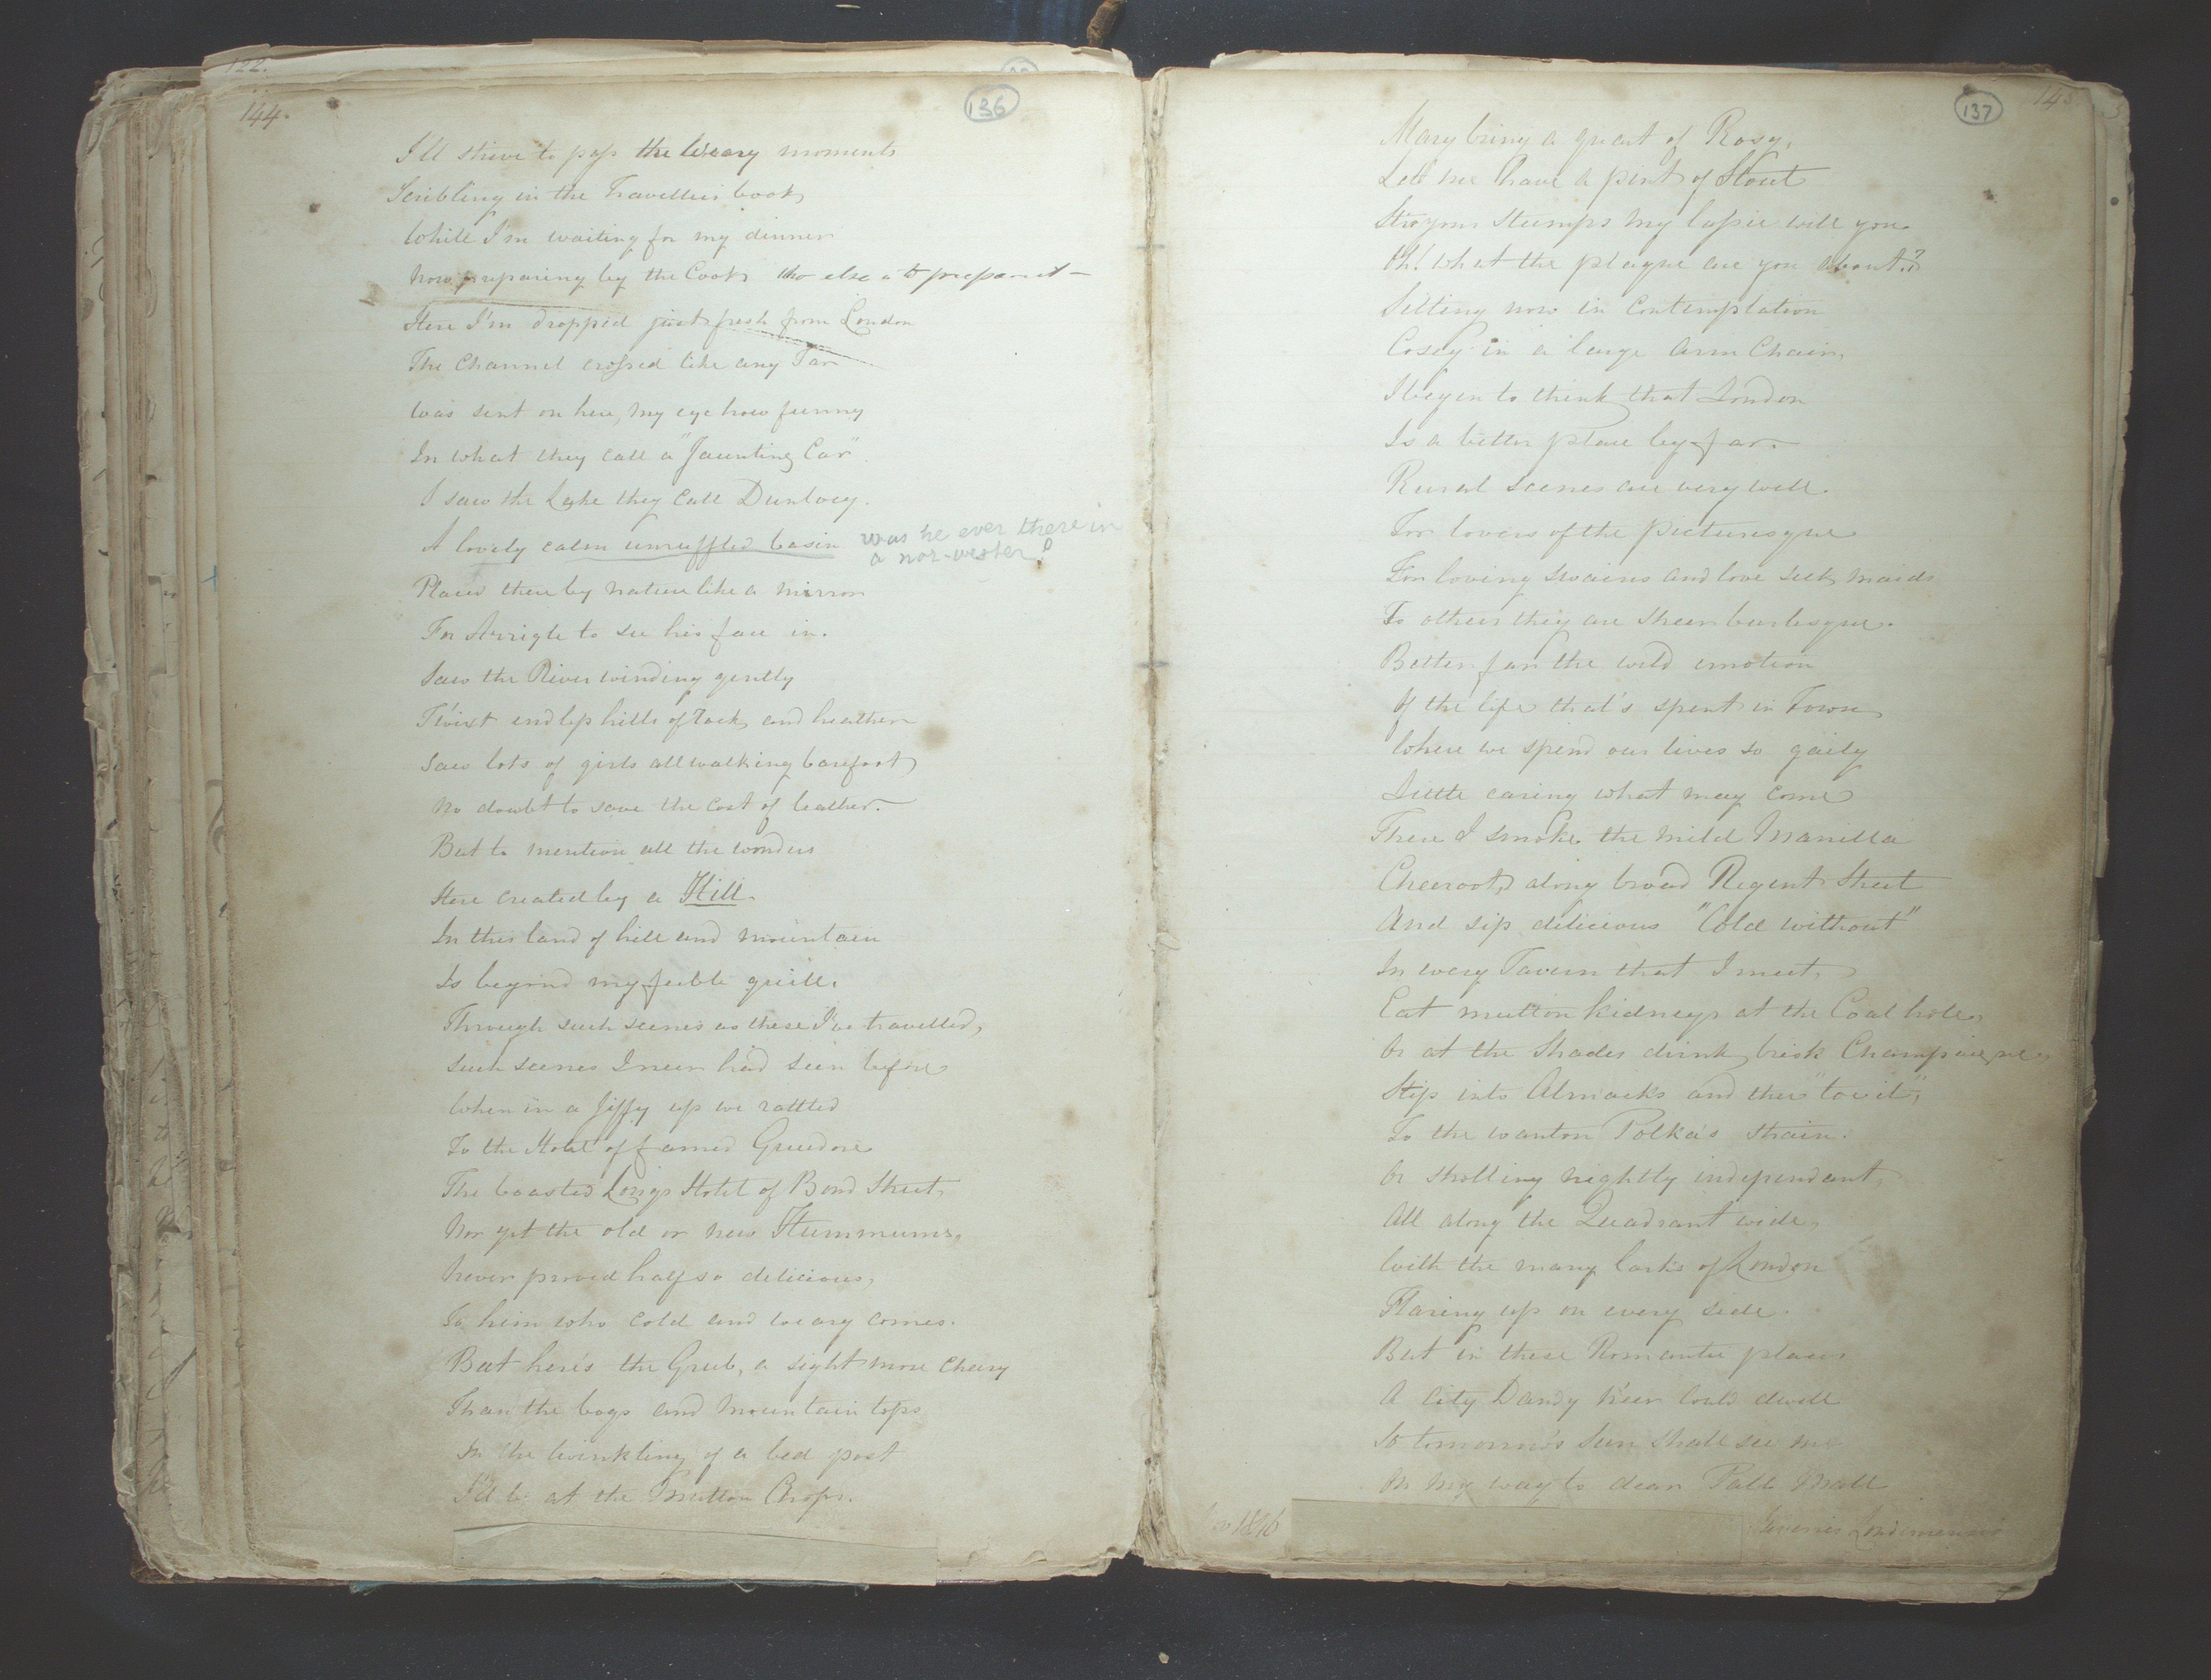 122.
144.
136
I'll strive to pass the weary moments
Scribling in the Travellers book
While I'm waiting for my dinner
Now preparing by the Cook who else is to prepare it –
Here I'm dropped just fresh from London
The Channel crossed like any Tar
Was sent on here, my eye how funny
In what they call a "Jaunting Car"
I saw the Lake they call Dunlwey.
A lovely calm unruffled basin was he ever there in
a nor-wester?
Placed there by nature like a mirror
For Arrigle to see his face in.
Saw the River winding gently
Twixt endless hills of rock and heather
Saw lots of girls all walking barefoot
No doubt to save the cost of leather.
But to mention all the wonders
Here created by a Hill.
In this land of hill and mountain
Is beyond my feeble quill.
Through such scenes as these I've travelled,
Such scenes I neer had seen before
When in a Jiffy up we rattled
To the Hotel of famed Gweedore
The boasted Longs Hotel of Bond Street,
Nor yet the old or new Hummums,
Never proved half so delicious,
To him who cold and weary comes.
But here's the Grub, a sight more cheery
Than the bogs and mountain tops
In the twinkling of a bed post
I'll be at the Mutton Chops.
137
145
Mary bring a quart of Rosy,
Let me have a pint of Stout
Stir your Stumps my lassie will you
Oh! what the plague are you about?
Sitting now in Contemplation
Cosey in a large Arm Chair,
I begin to think that London
Is a better place by far.
Rural scenes are very well.
For lovers of the picturesque
For loving swains and love sick maids
To others they are sheer burlesque.
Better far the wild emotion
Of the life that's spent in Town
Where we spend our lives so gaily
Little caring what may come
There I smoke the mild Manilla
Cheeroot, along broad Regent Street
And sip delicious "Cold without"
In every Tavern that I meet,
Eat mutton kidneys at the Coal hole,
Or at the Shades drink brisk Champaigne,
Step into Almacks and there "toe it",
To the wanton Polka's strain.
Or strolling nightly independant,
All along the Quadrant wide,
With the many larks of London
Flaring up on every side.
But in these Romantic places
A City Dandy ne'er could dwell
So tomorrow's Sun shall see me
On my way to dear Pall Mall
1846
Juvenis Londinensis